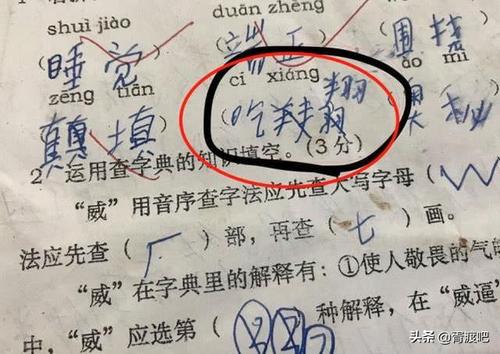 shuì jiào duān zhèng
(睡觉 (端正 (周
cí xiáng ào mì
zēng tiān (吃 翔翔 (奥秘
(颠填
2 运用查字典的知识填空。(3分)
“威”用音序查字法应先查大写字母(W
法应先查(厂)部，再查(七)画。
“威”在字典里的解释有：①使人敬畏的气
中，“威”应选第( 种解释，在“威逼
头条 @胥渡吧